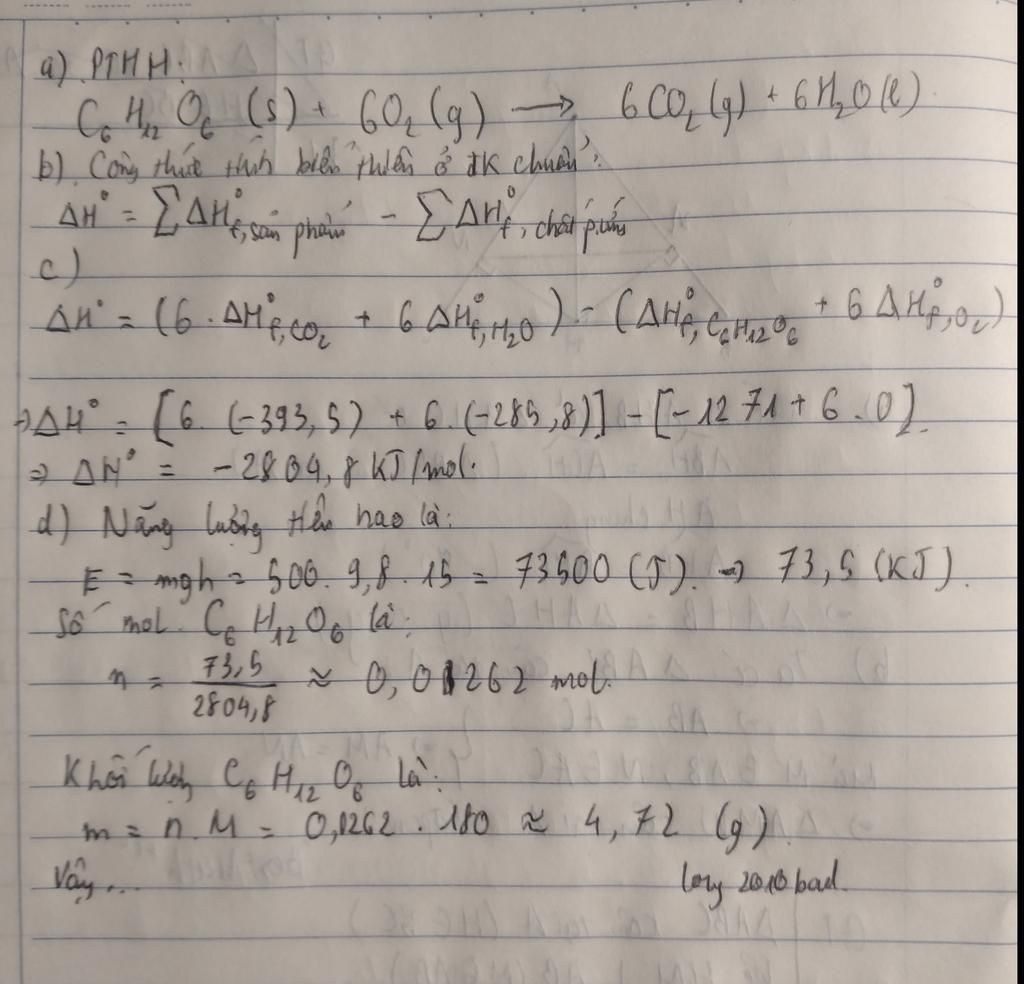 a) PTHH:
C₆H₁₂O₆ (s) + 6O₂ (g) → 6CO₂ (g) + 6H₂O (l)
b) Công thức tính biến thiên ở đk chuẩn:
ΔH° = ∑ΔH°f, sản phẩm - ∑ΔH°f, chất p.ứng
c)
ΔH° = (6 . ΔH°f,CO₂ + 6 ΔH°f,H₂O) - (ΔH°f,C₆H₁₂O₆ + 6 ΔH°f,O₂)
⇒ ΔH° = [6. (-393,5) + 6. (-285,8)] - [-1271 + 6 . 0].
⇒ ΔH° = -2804,8 KJ/mol.
d) Năng lượng tiêu hao là:
E = mgh = 500. 9,8 . 15 = 73500 (J). → 73,5 (KJ).
Số mol C₆H₁₂O₆ là:
n = 73,5 / 2804,8 ≈ 0,0262 mol.
Khối lượng C₆H₁₂O₆ là:
m = n.M = 0,0262 . 180 ≈ 4,72 (g).
Vậy...